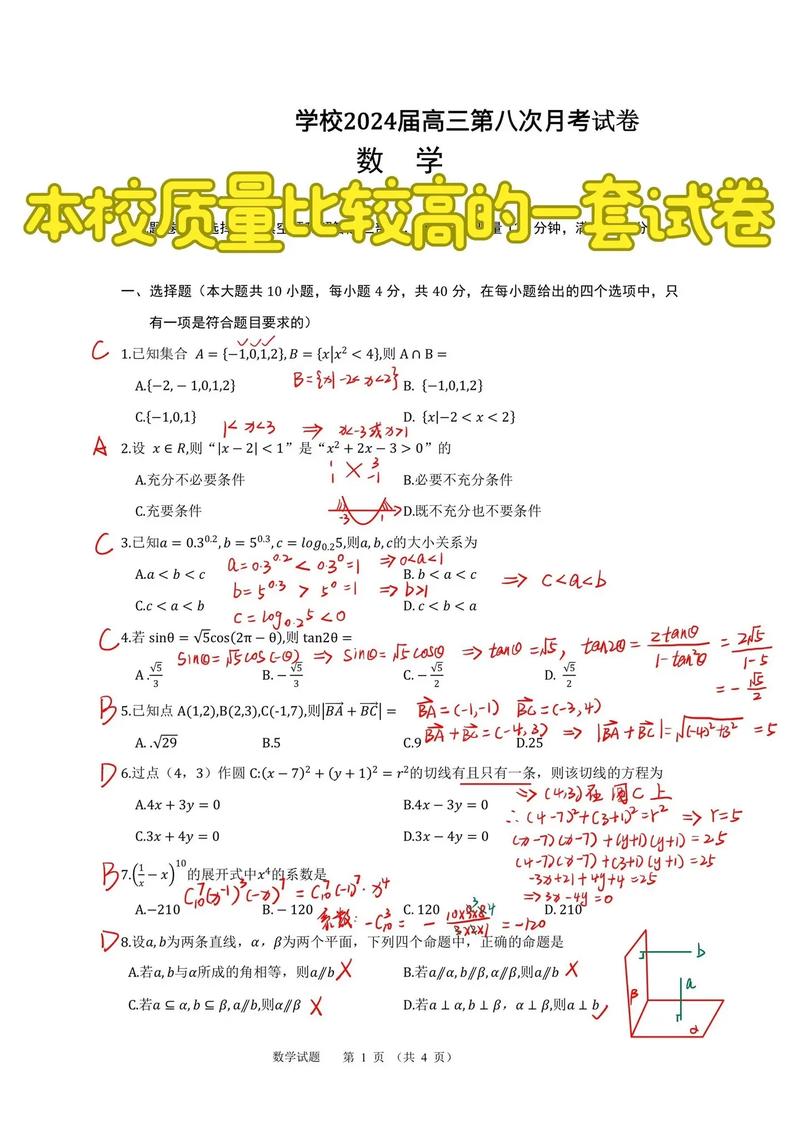 学校2024届高三第八次月考试卷
数 学
本校质量比较高的一套试卷
一、选择题（本大题共 10 小题，每小题 4 分，共 40 分，在每小题给出的四个选项中，只
有一项是符合题目要求的）
C 1.已知集合 A = {−1,0,1,2}, B = {x|x² < 4},则 A ∩ B =
A.{−2, − 1,0,1,2} B={x|-2<x<2} B. {−1,0,1,2}
C.{−1,0,1} D. {x|−2 < x < 2}
1<x<3 ⇒ x<-3或x>1
A 2.设 x ∈ R,则“|x − 2| < 1”是“x² + 2x − 3 > 0”的
1 3
1 -1
A.充分不必要条件 B.必要不充分条件
C.充要条件 -3 1 D.既不充分也不要条件
C 3.已知a = 0.3^0.2, b = 5^0.3, c = log_0.2 5,则a, b, c的大小关系为
a=0.3^0.2 < 0.3^0=1 ⇒0<a<1
A.a < b < c B. b < a < c
b=5^0.3 > 5^0=1 ⇒ b>1 ⇒ c<a<b
C.c < a < b D. c < b < a
c=log_0.2 5 <0
C 4.若 sinθ = √5cos(2π − θ),则 tan2θ =
sinθ=√5cos(-θ) ⇒ sinθ=√5cosθ ⇒ tanθ=√5, tan2θ = 2tanθ/(1-tan²θ) = 2√5/(1-5)
= -√5/2
A. √5/3 B. − √5/3 C. − √5/2 D. √5/2
B 5.已知点 A(1,2),B(2,3),C(-1,7),则|BA→ + BC→| = BA→=(-1,-1) BC→=(-3,4)
BA→+BC→=(-4,3) ⇒ |BA→+BC→|=√((-4)²+3²) =5
A. .√29 B.5 C.9 D.25
D 6.过点（4，3）作圆 C:(x − 7)² + (y + 1)² = r²的切线有且只有一条，则该切线的方程为
⇒ (4,3)在圆C上
A.4x + 3y = 0 B.4x − 3y = 0
∴ (4-7)²+(3+1)²=r² ⇒ r=5
C.3x + 4y = 0 D.3x − 4y = 0
(x-7)(x-7)+(y+1)(y+1)=25
(4-7)(x-7)+(3+1)(y+1)=25
-3x+21+4y+4=25
⇒3x-4y=0
B 7.(1/x − x)^10 的展开式中x⁴的系数是
C_10^7(x^-1)^3(-x)^7 = C_10^7(-1)^7·x^4
A.−210 B. − 120 C. 120 D. 210
系数: -C_10^3 = - 10×9×8/3×2×1 = -120
3 4
D 8.设a, b为两条直线，α，β为两个平面，下列四个命题中，正确的命题是
A.若a, b与α所成的角相等，则a//b X B.若a//α, b//β, α//β,则a//b X
C.若a ⊆ α, b ⊆ β, a//b,则α//β X D.若a ⊥ α, b ⊥ β，α ⊥ β,则a ⊥ b ✓
b
a
β
α
数学试题 第 1 页 （共 4 页）